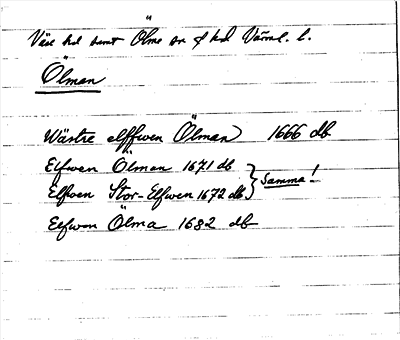 Väse hd samt Ölme sn o hd Värml. l.
Ölman
Wästre elffwen Ölman 1666 db
Elfwen Ölman 1671 db
Elfwen Stor-Elfwen 1672 db } Samma!
Eefwen Ölma 1682 db